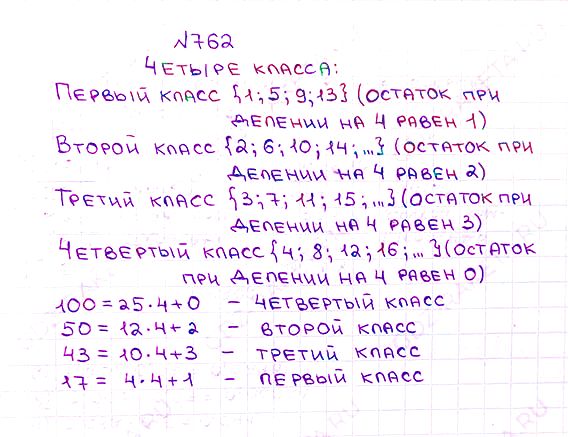 №762
ЧЕТЫРЕ КЛАССА:
ПЕРВЫЙ КЛАСС {1; 5; 9; 13} (ОСТАТОК ПРИ
ДЕЛЕНИИ НА 4 РАВЕН 1)
ВТОРОЙ КЛАСС {2; 6; 10; 14; ...} (ОСТАТОК ПРИ
ДЕЛЕНИИ НА 4 РАВЕН 2)
ТРЕТИЙ КЛАСС {3; 7; 11; 15; ...} (ОСТАТОК ПРИ
ДЕЛЕНИИ НА 4 РАВЕН 3)
ЧЕТВЕРТЫЙ КЛАСС {4; 8; 12; 16; ...} (ОСТАТОК
ПРИ ДЕЛЕНИИ НА 4 РАВЕН 0)
100 = 25·4+0 – ЧЕТВЕРТЫЙ КЛАСС
50 = 12·4+2 – ВТОРОЙ КЛАСС
43 = 10·4+3 – ТРЕТИЙ КЛАСС
17 = 4·4+1 – ПЕРВЫЙ КЛАСС